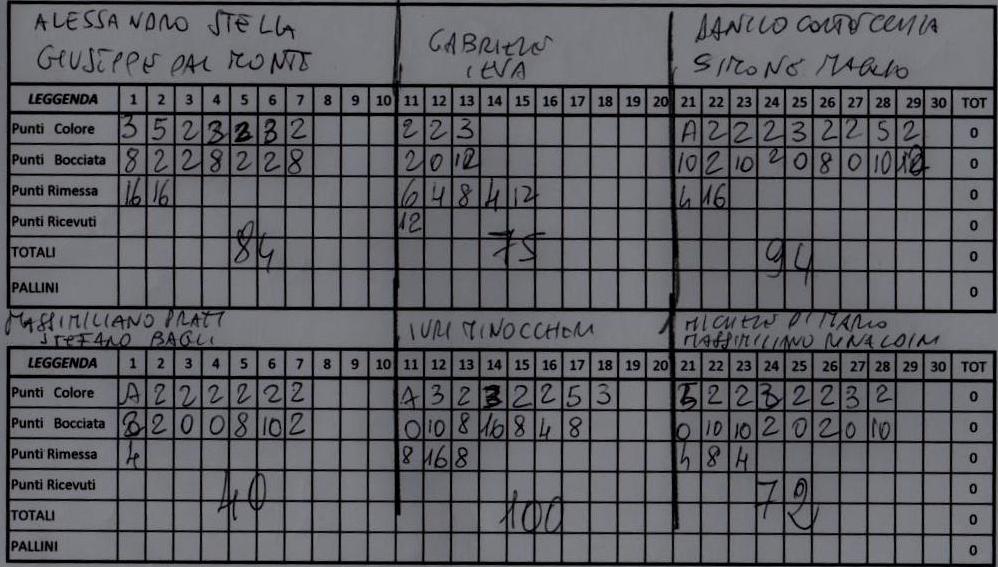 ALESSANDRO STELLA GABRIELE DANILO
GIUSEPPE DAL MONTE IEVA SIMONE MAGLIO
LEGGENDA 1 2 3 4 5 6 7 8 9 10 11 12 13 14 15 16 17 18 19 20 21 22 23 24 25 26 27 28 29 30 TOT
Punti Colore 3 5 2 3 2 3 2 2 2 3 A 2 2 2 3 2 2 5 2 0
Punti Bocciata 8 2 2 8 2 2 8 2 0 12 10 2 10 2 0 8 0 10 0
Punti Rimessa 16 16 6 4 8 4 12 4 16 0
Punti Ricevuti 12 0
TOTALI 84 75 94 0
PALLINI 0
MASSIMILIANO PRATI IURI MINOCCHERI MICHELE DI MARIO
STEFANO BAGLI MASSIMILIANO RINALDINI
LEGGENDA 1 2 3 4 5 6 7 8 9 10 11 12 13 14 15 16 17 18 19 20 21 22 23 24 25 26 27 28 29 30 TOT
Punti Colore A 2 2 2 2 2 2 A 3 2 3 2 2 5 3 5 2 2 3 2 2 3 2 0
Punti Bocciata 8 2 0 0 8 10 2 0 10 8 16 8 4 8 0 10 10 2 0 2 0 10 0
Punti Rimessa 4 8 16 8 4 8 4 0
Punti Ricevuti 40 72 0
TOTALI 100 0
PALLINI 0